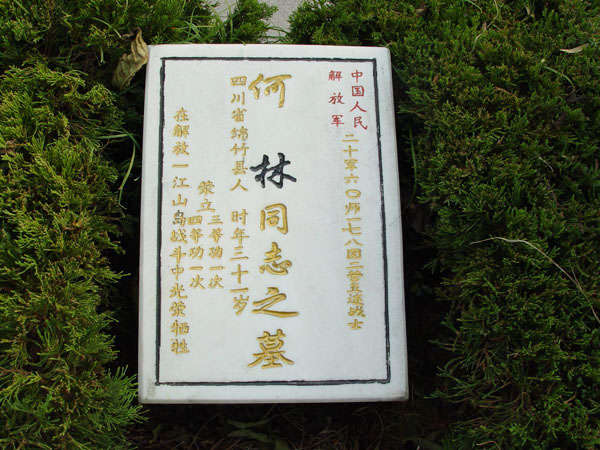 中国人民
解放军
二十军六〇师一七八团二营五连战士
何林同志之墓
四川省绵竹县人 时年三十一岁
荣立三等功一次
四等功一次
在解放一江山岛战斗中光荣牺牲